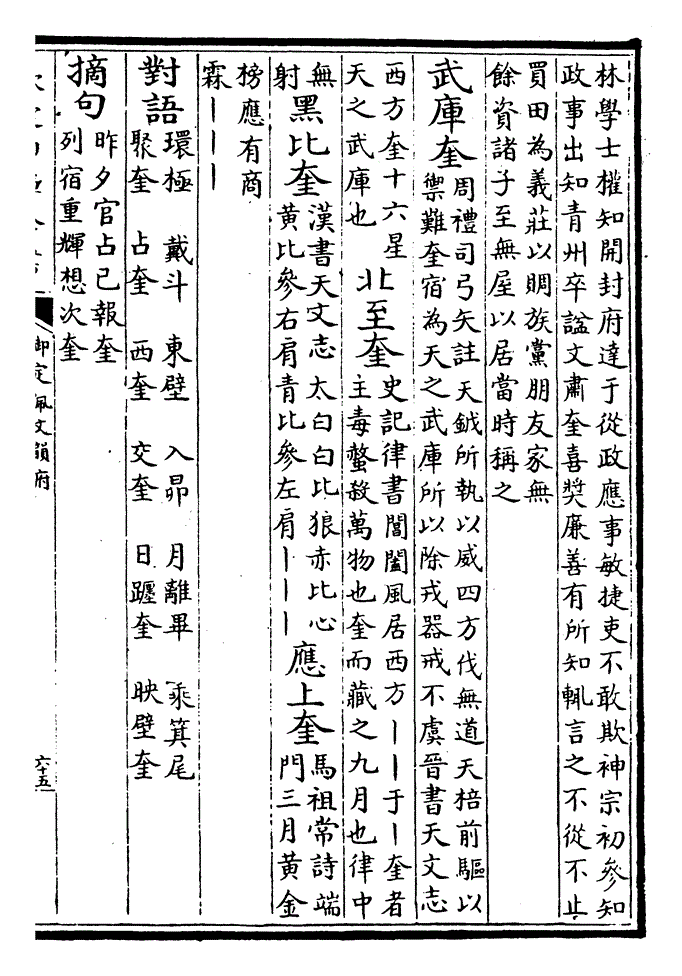 林學士權知開封府達于從政應事敏捷吏不敢欺神宗初參知
政事出知青州卒諡文肅奎喜奬廉善有所知輒言之不從不止
買田為義莊以賙族黨朋友家無
餘資諸子至無屋以居當時稱之
武庫奎周禮司弓矢註天鉞所執以威四方伐無道天棓前驅以
禦難奎宿為天之武庫所以除戎器戒不虞晉書天文志
西方奎十六星
天之武庫也
北至奎史記律書閶闔風居西方丨丨于丨奎者
主毒螫殺萬物也奎而藏之九月也律中
無
射
黑比奎漢書天文志太白白比狼赤比心
黃比參右肩青比參左肩丨丨丨
應上奎馬祖常詩端
門三月黃金
榜應有商
霖丨丨丨
對語環極 戴斗 東壁 入昴 月離畢 乘箕尾
聚奎 占奎 西奎 交奎 日躔奎 映壁奎
摘句昨夕官占已報奎
列宿重輝想次奎
御定佩文韻府
六十五